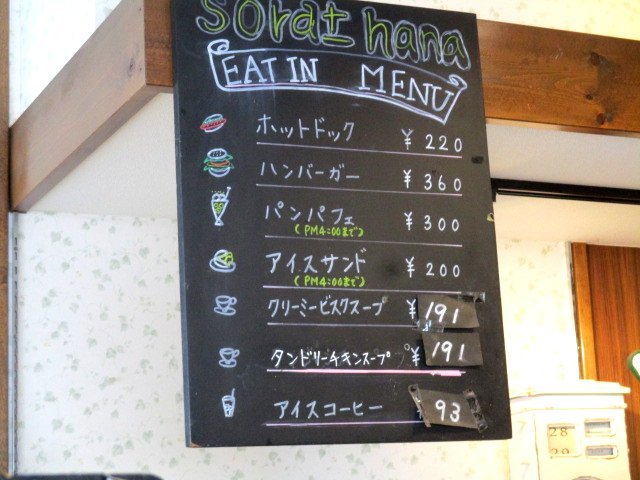 sorat± hana
EAT IN MENU
ホットドック ¥220
ハンバーガー ¥360
パンパフェ ¥300
(PM4:00まで)
アイスサンド ¥200
(PM4:00まで)
クリーミービスクスープ ¥191
タンドリーチキンスープ ¥191
アイスコーヒー ¥93
28